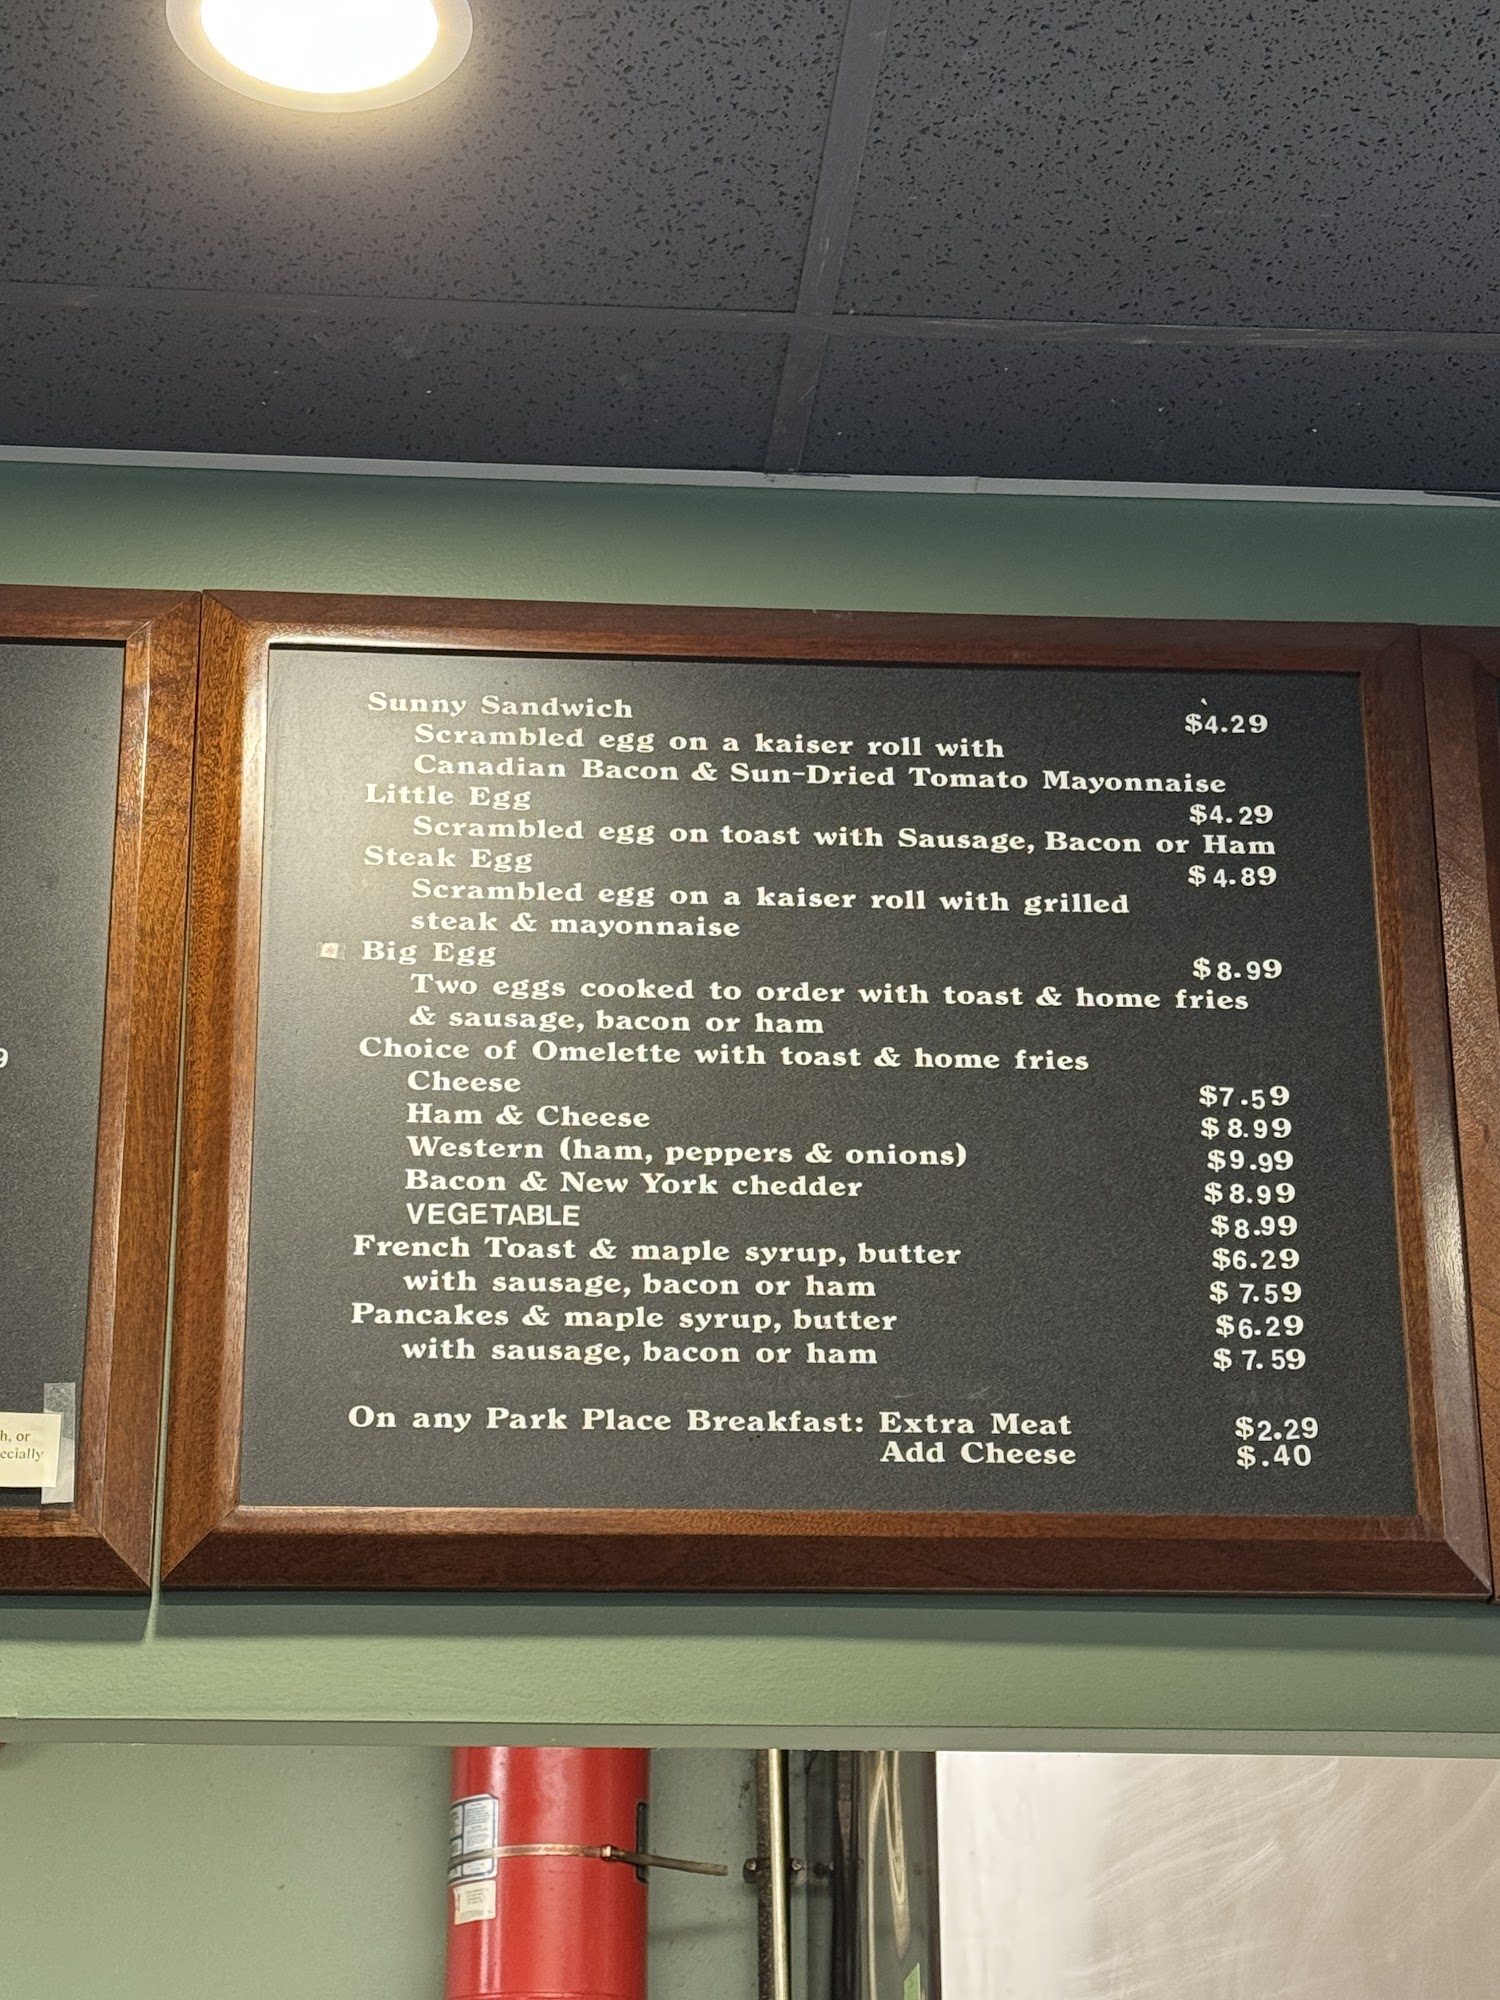 Sunny Sandwich $4.29
Scrambled egg on a kaiser roll with
Canadian Bacon & Sun-Dried Tomato Mayonnaise
Little Egg $4.29
Scrambled egg on toast with Sausage, Bacon or Ham
Steak Egg $4.89
Scrambled egg on a kaiser roll with grilled
steak & mayonnaise
Big Egg $8.99
Two eggs cooked to order with toast & home fries
& sausage, bacon or ham
Choice of Omelette with toast & home fries
Cheese $7.59
Ham & Cheese $8.99
Western (ham, peppers & onions) $9.99
Bacon & New York chedder $8.99
VEGETABLE $8.99
French Toast & maple syrup, butter $6.29
with sausage, bacon or ham $7.59
Pancakes & maple syrup, butter $6.29
with sausage, bacon or ham $7.59
On any Park Place Breakfast: Extra Meat $2.29
Add Cheese $.40
9
h, or
ecially